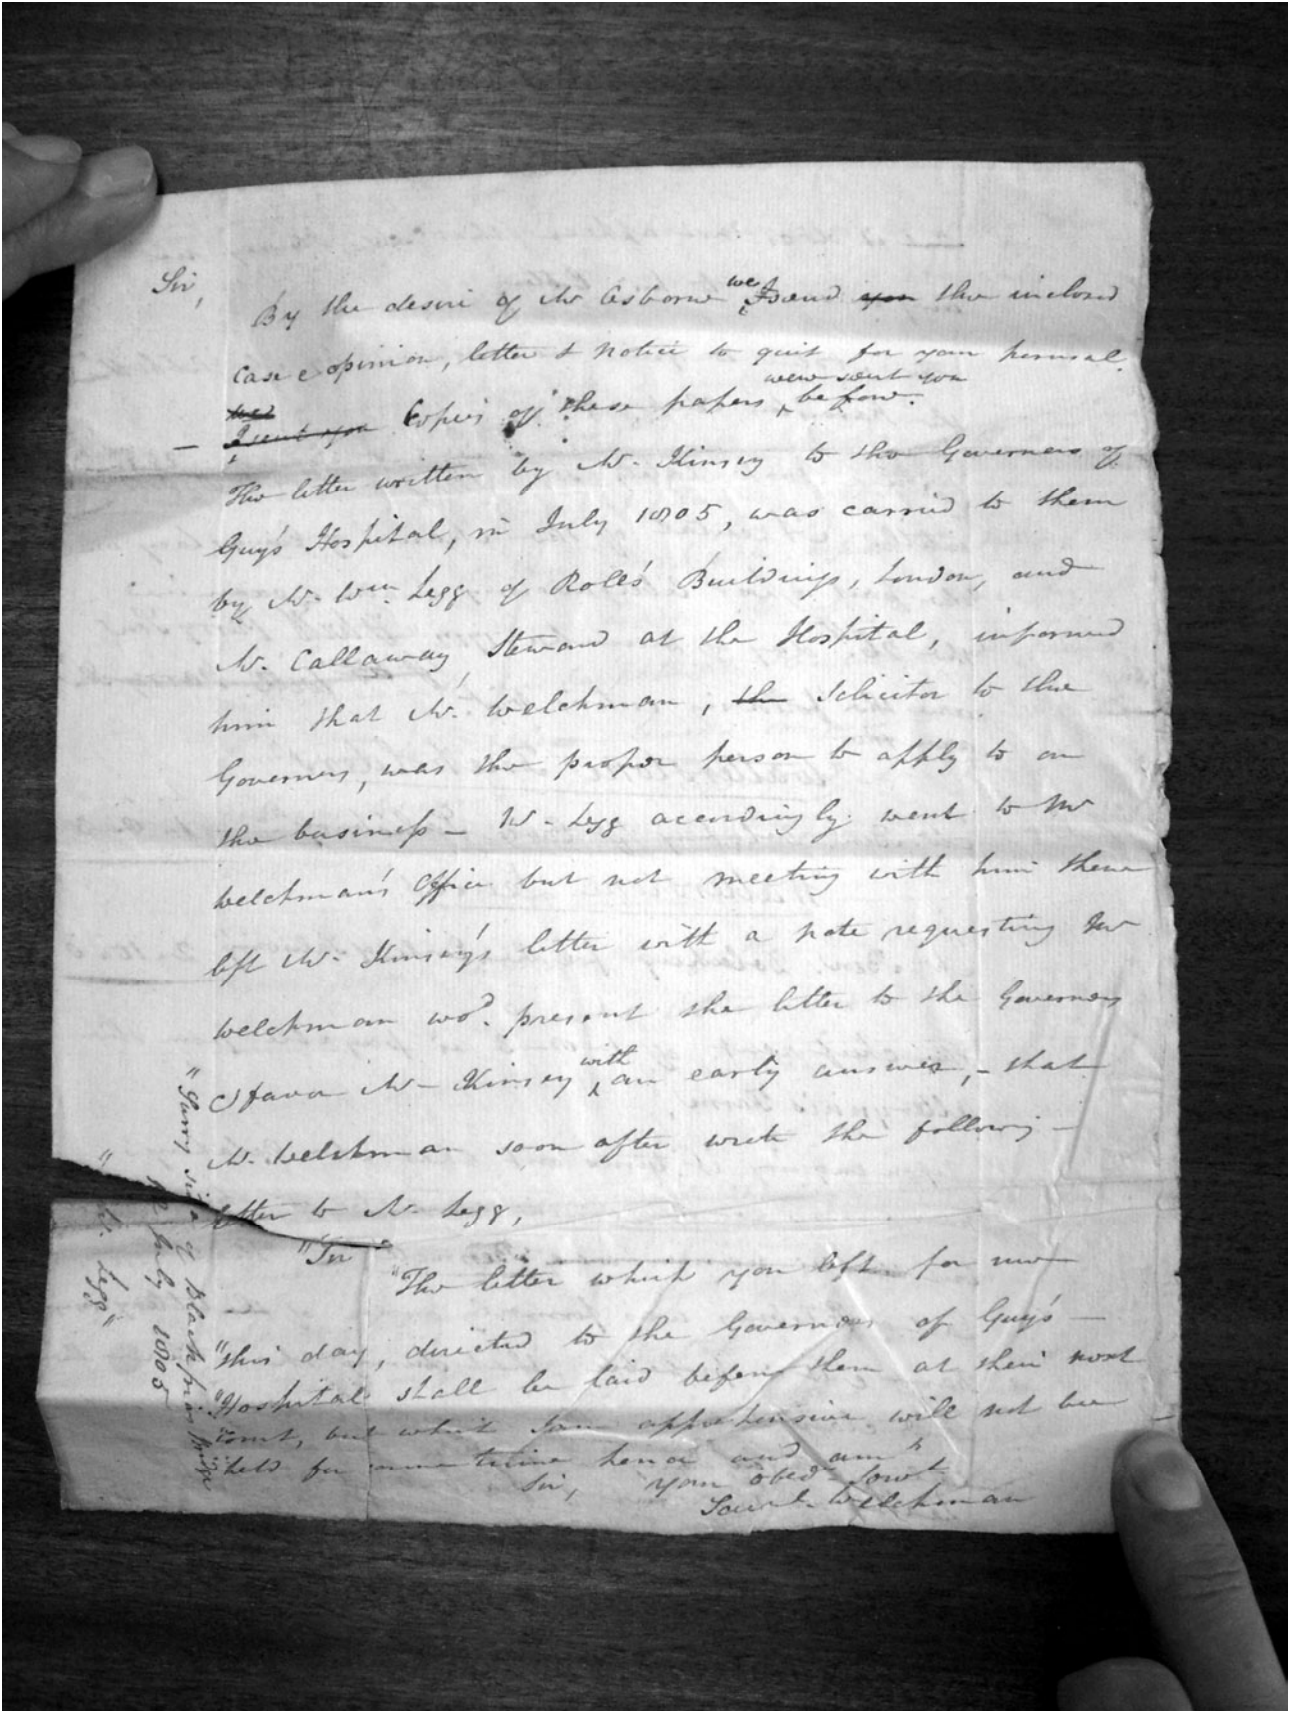 Sir,
By the desire of Mr Osborne we send you the inclosed
Case & opinion, letter & notice to quit for your perusal.
we
I sent you Copies of these papers were sent you before.
The letter written by Mr. Kinsey to the Governors of
Guy's Hospital, in July 1805, was carried to them
by Mr. Wm. Legg of Roll's Buildings, London, and
Mr. Callaway, Steward at the Hospital, informed
him that Mr. Welchman, the Solicitor to the
Governors, was the proper person to apply to on
the business – Mr. Legg accordingly went to Mr
Welchman's Office but not meeting with him there
left Mr. Kinsey's letter with a note requesting Mr
Welchman wod. present the letter to the Governors
& favor Mr Kinsey with an early answer, – that
Mr. Welchman soon after wrote the following –
letter to Mr. Legg,
"Sir
"The letter which you left for me
"this day, directed to the Governors of Guy's –
"Hospital shall be laid before them at their next
"Court, but which I am apprehensive will not be
"held for some time hence and am"
Sir, your obed. Servt
Saml. Welchman
"Surry side of Black friars Bridge
12 July 1805
"Mr. Legg"